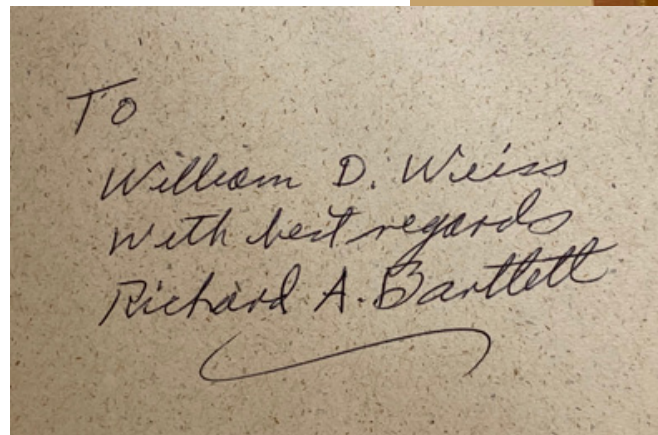 To
William D. Weiss
With best regards
Richard A. Bartlett